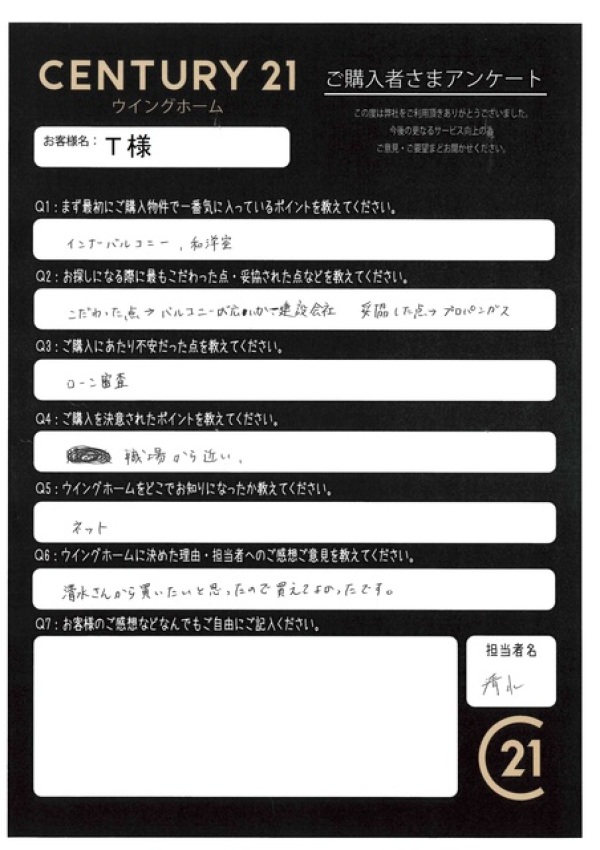 CENTURY 21
ウイングホーム
ご購入者さまアンケート
この度は弊社をご利用頂きありがとうございました。
今後の更なるサービス向上の為
ご意見・ご要望をお聞かせください。
お客様名： T様
Q1：まず最初にご購入物件で一番気に入っているポイントを教えてください。
インナーバルコニー、和洋室
Q2：お探しになる際に最もこだわった点・妥協された点などを教えてください。
こだわった点→バルコニーが広めかつ建設会社 妥協した点→プロパンガス
Q3：ご購入にあたり不安だった点を教えてください。
ローン審査
Q4：ご購入を決意されたポイントを教えてください。
職場から近い。
Q5：ウイングホームをどこでお知りになったか教えてください。
ネット
Q6：ウイングホームに決めた理由・担当者へのご感想ご意見を教えてください。
清水さんから買いたいと思ったので買えてよかったです。
Q7：お客様のご感想などなんでもご自由にご記入ください。
担当者名
清水
21